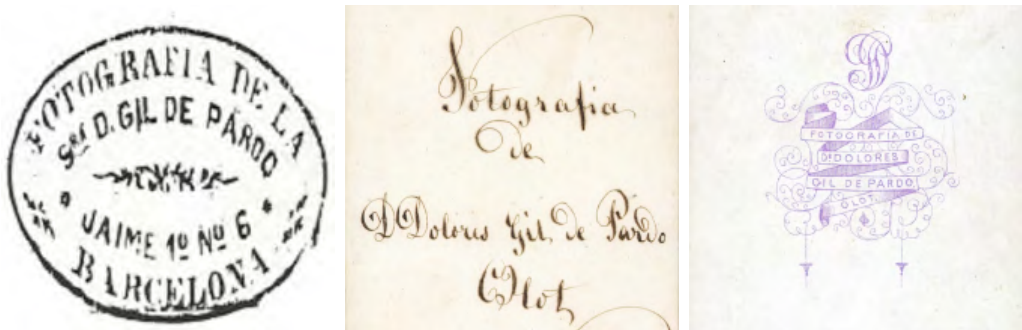 FOTOGRAFIA DE LA
Sra D. GIL DE PARDO
JAIME 1º Nº 6
BARCELONA
Fotografia
de
D Dolores Gil de Pardo
Olot
FOTOGRAFIA DE
Dª DOLORES
GIL DE PARDO
OLOT